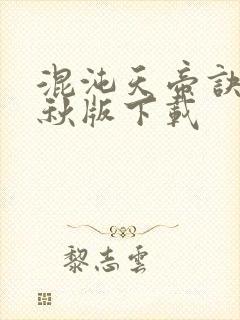 混沌天帝訣
秋版下載
黎志雲